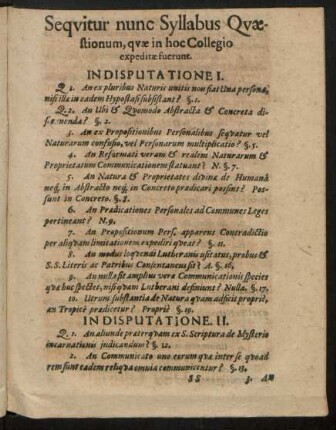 Seqvitur nunc Syllabus Qvæ-
stionum, qvæ in hoc Collegio
expeditæ fuerunt.
IN DISPUTATIONE I.
Q. 1. An ex pluribus Naturis unitis non fiat Una persona,
nisi illæ in eadem Hypostasi subsistant? §. 1.
Q. 2. An Ubi & Qvomodo Abstracta & Concreta di-
§. 2.
3. An ex Propositionibus Personalibus seqvatur vel
Naturarum confusio, vel Personarum multiplicatio? §. 5.
4. An Reformati veram & realem Naturarum &
Proprietatum Communicationem statuant? N. §. 7.
5. An Natura & Proprietates divinæ de Humanâ
neq, in Abstracto neq, in Concreto prædicari possint? Pos-
sunt in Concreto. §. 8.
6. An Prædicationes Personales ad Communes Leges
pertineant? N. 9.
7. An Propositionum Pers. apparens Contradictio
per aliqvam limitationem expediri qveat? §. 11.
8. An modus loqvendi Lutheranis usitatus, probus &
S. S. Literis ac Patribus Consentaneus sit? A. §. 16,
9. An nulla sit amplius vera Communicationis species
qvæ huc spectet, nisi qvam Lutherani definiunt? Nulla. §. 17.
10. Utrum substantia de Natura qvam adficit propriè,
an Tropicè prædicetur? Propriè §. 19.
IN DISPUTATIONE. II.
Q. 1. An aliunde præterqvam ex S. Scriptura de Mysterio
incarnationis judicandum? §. 12.
2. An Communicato uno eorum qvæ inter se qvoad
rem sunt eadem reliqva omnia communicentur? §. 13.
SS 3. An